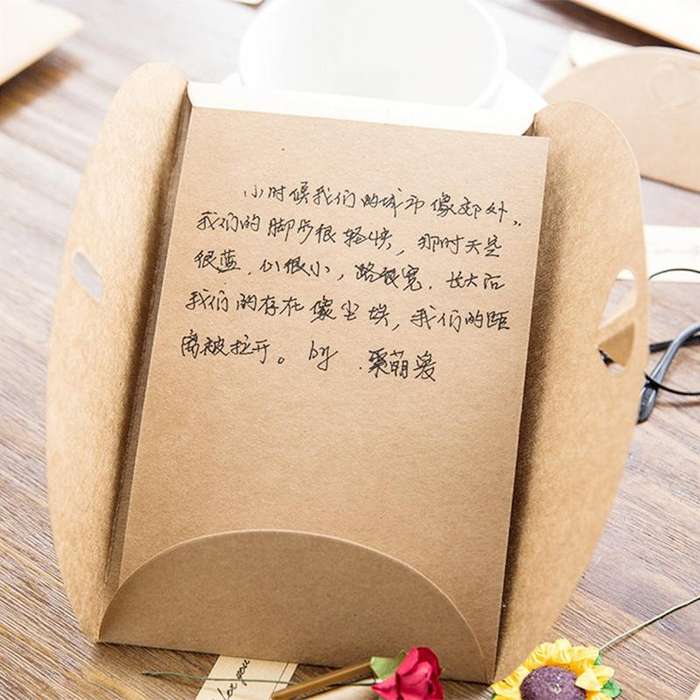 小时候我们的城市像郊外。
我们的脚步很轻快，那时天是
很蓝，心很小，路很宽。长大后
我们的存在像尘埃，我们的距
离被拉开。by 萌爱
for you